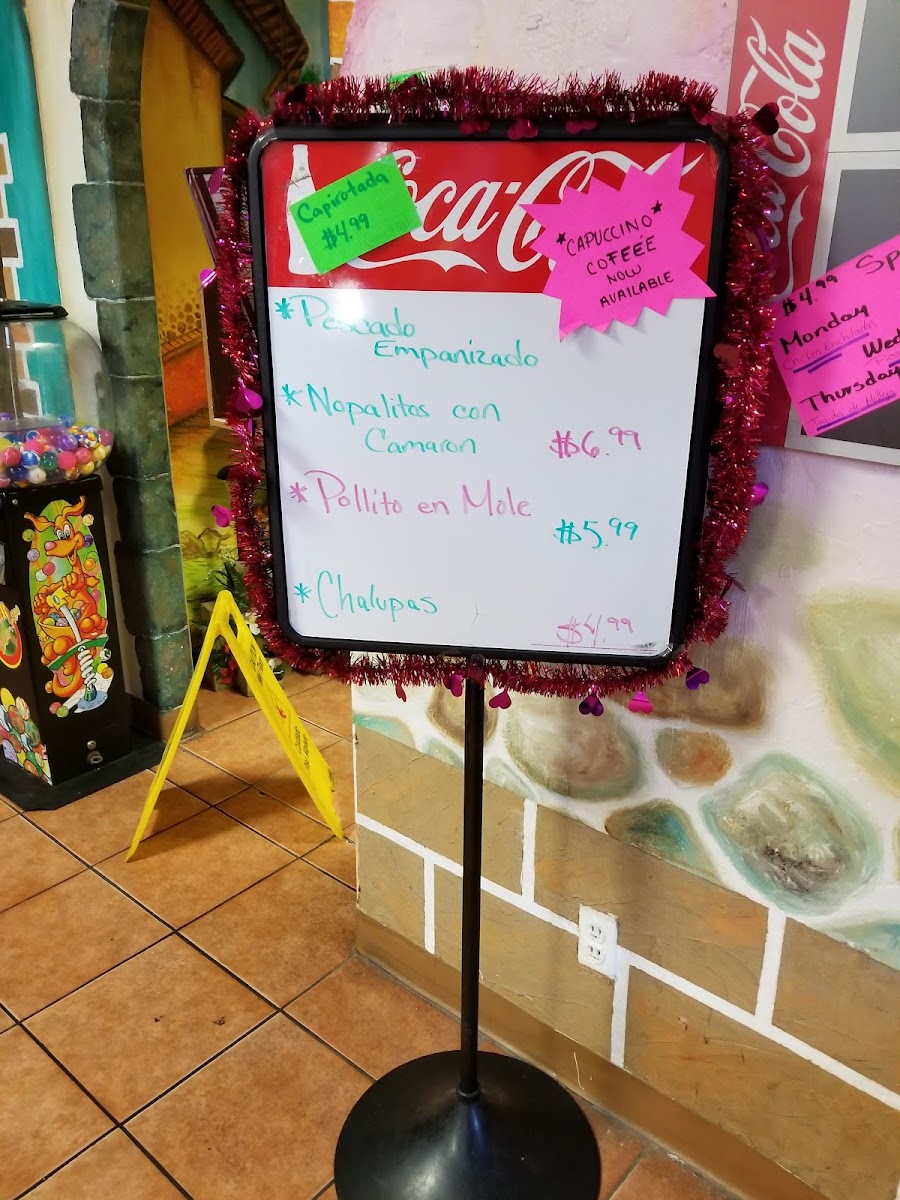 Coca-Cola
Coca-Cola
Capirotada
$4.99
*CAPUCCINO*
COFFEE
NOW
AVAILABLE
* Pescado
Empanizado
* Nopalitos con
Camaron $6.99
* Pollito en Mole
$5.99
* Chalupas
$4.99
$4.99 Sp
Monday
Chicken Enchiladas
Wed
Thursday